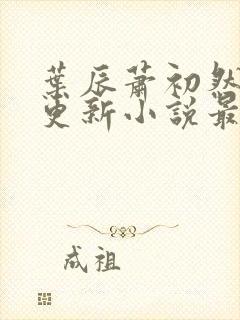 葉辰蕭初然
更新小說最
成祖